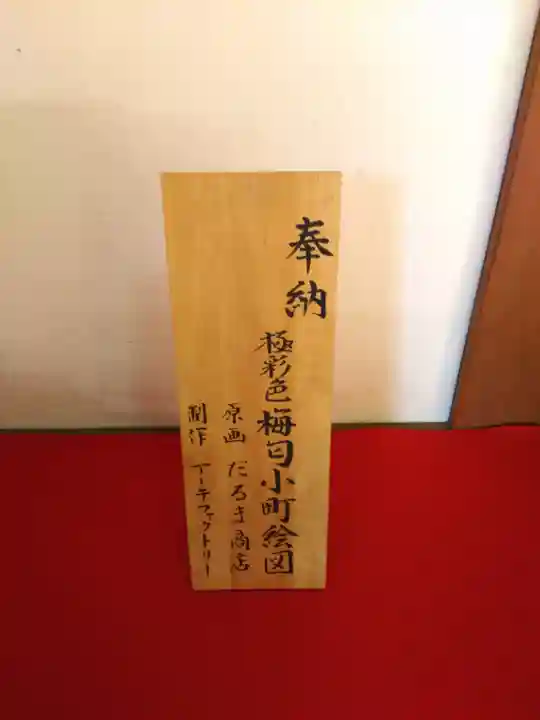 奉納
極彩色梅匂小町絵図
原画 だるま商店
制作 アーテファクトリー